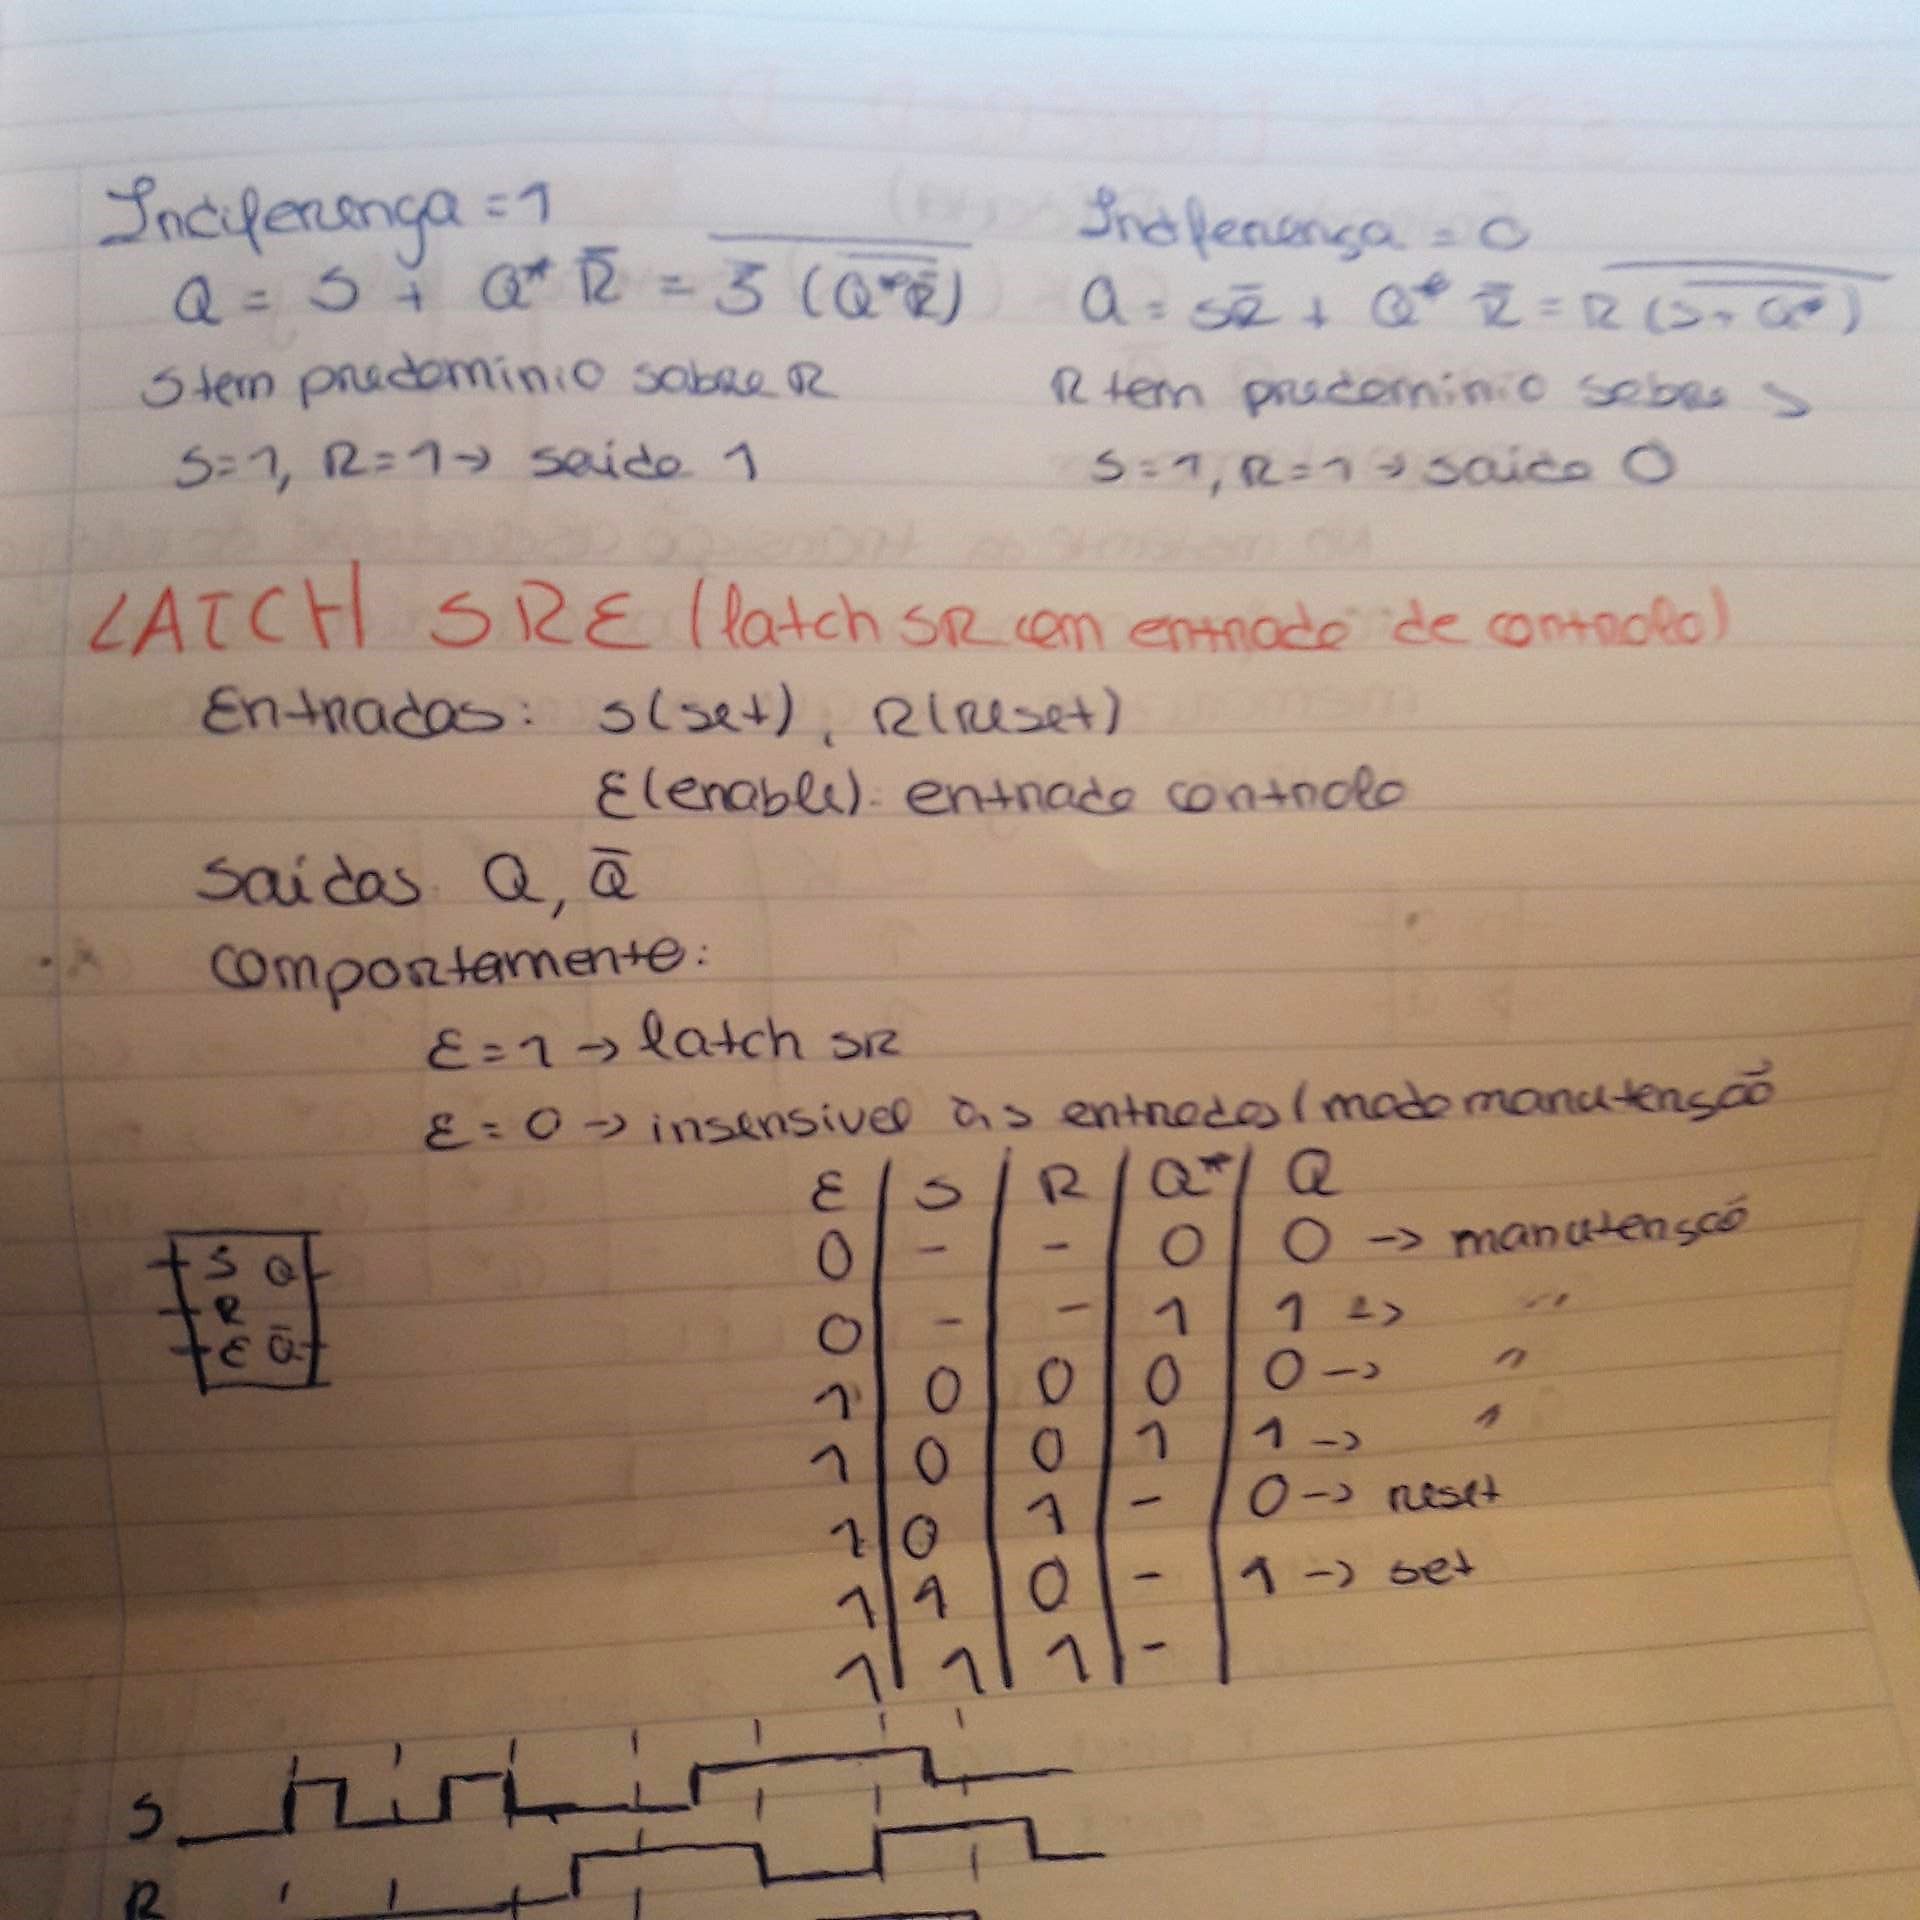 Indiferença = 1
Q = S + Q* R̅ = \overline{S̅ (\overline{Q* R̅})}
S tem predominio sobre R
S=1, R=1 → saida 1
Indiferença = 0
Q = SR̅ + Q* R̅ = \overline{R (\overline{S + Q*})}
R tem predominio sobre S
S=1, R=1 → saida 0
LATCH SRE (latch SR com entrada de controlo)
Entradas: S(set), R(reset)
E(enable): entrada controlo
Saidas: Q, Q̅
comportamente:
E=1 → latch SR
E=0 → insensivel às entradas (modo manutensão
E | S | R | Q* | Q
0 | - | - | 0 | 0 → manutensão
0 | - | - | 1 | 1 → "
1 | 0 | 0 | 0 | 0 → "
1 | 0 | 0 | 1 | 1 → "
1 | 0 | 1 | - | 0 → reset
1 | 1 | 0 | - | 1 → set
1 | 1 | 1 | - |
S Q
R
E Q̅
S
R